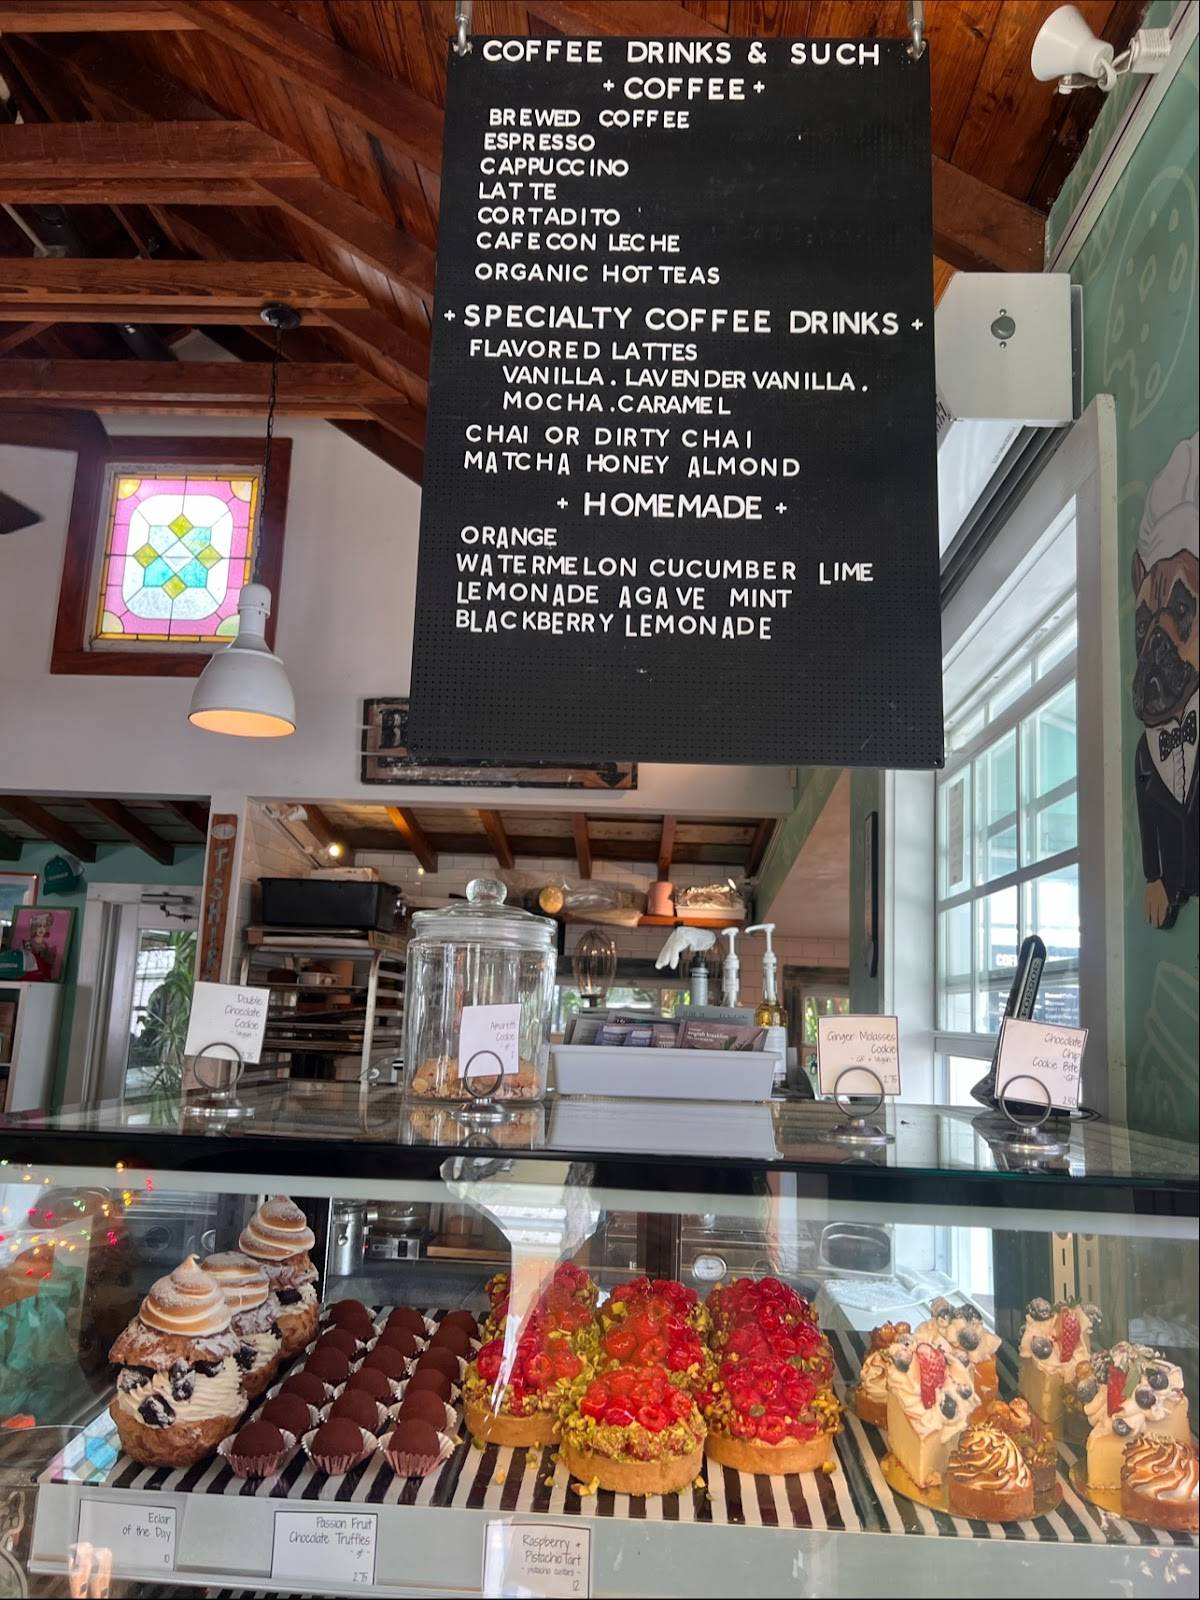 COFFEE DRINKS & SUCH
+ COFFEE +
BREWED COFFEE
ESPRESSO
CAPPUCCINO
LATTE
CORTADITO
CAFE CON LECHE
ORGANIC HOT TEAS
+ SPECIALTY COFFEE DRINKS +
FLAVORED LATTES
VANILLA . LAVENDER VANILLA .
MOCHA . CARAMEL
CHAI OR DIRTY CHAI
MATCHA HONEY ALMOND
+ HOMEMADE +
ORANGE
WATERMELON CUCUMBER LIME
LEMONADE AGAVE MINT
BLACKBERRY LEMONADE
Double
Chocolate
Cookie
- Vegan -
Amaretti
Cookie
Ginger Molasses
Cookie
- GF + Vegan -
2.75
Chocolate
Chip
Cookie Bite
- GF -
2.50
Eclair
of the Day
10
Passion Fruit
Chocolate Truffles
- gf -
2.75
Raspberry +
Pistachio Tart
- pistachio custard -
12